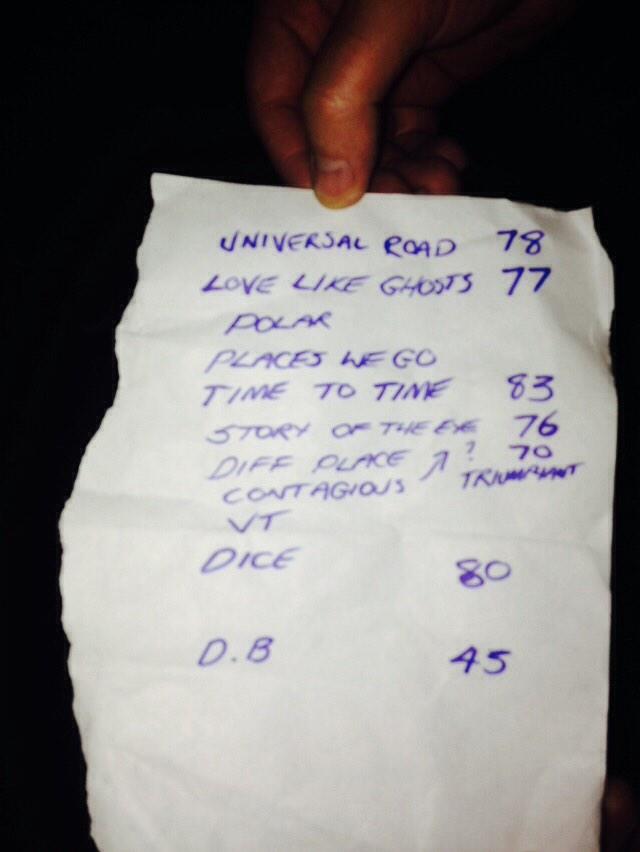 UNIVERSAL ROAD 78
LOVE LIKE GHOSTS 77
POLAR
PLACES WE GO
TIME TO TIME 83
STORY OF THE EYE 76
DIFF PLACE ↗ ? 70
TRIUMPHANT
CONTAGIOUS
VT
DICE 80
D.B 45